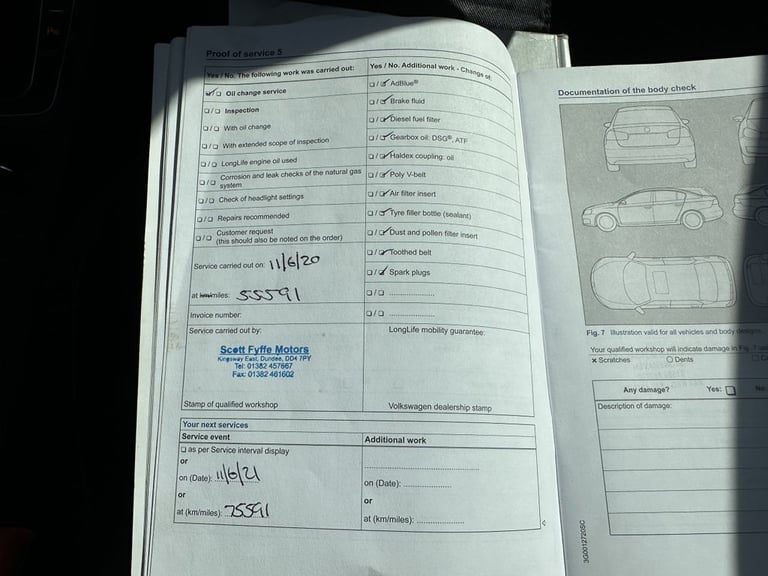 Proof of service 5
Yes / No. The following work was carried out:
Oil change service
Inspection
With oil change
With extended scope of inspection
LongLife engine oil used
Corrosion and leak checks of the natural gas
system
Check of headlight settings
Repairs recommended
Customer request
(this should also be noted on the order)
Service carried out on: 11/6/20
at km/miles: 55591
Invoice number:
Service carried out by:
Scott Fyffe Motors
Kingsway East, Dundee, DD4 7PY
Tel: 01382 457667
Fax: 01382 461602
Stamp of qualified workshop
Yes / No. Additional work - Change of:
AdBlue®
Brake fluid
Diesel fuel filter
Gearbox oil: DSG®, ATF
Haldex coupling: oil
Poly V-belt
Air filter insert
Tyre filler bottle (sealant)
Dust and pollen filter insert
Toothed belt
Spark plugs
LongLife mobility guarantee:
Volkswagen dealership stamp
Your next services
Service event
as per Service interval display
or
on (Date): 11/6/21
or
at (km/miles): 75591
Additional work
on (Date):
or
at (km/miles):
Documentation of the body check
Fig. 7 Illustration valid for all vehicles and body designs
Your qualified workshop will indicate damage in Fig. 7
x Scratches O Dents
Any damage? Yes: No:
Description of damage:
3G0012720SC